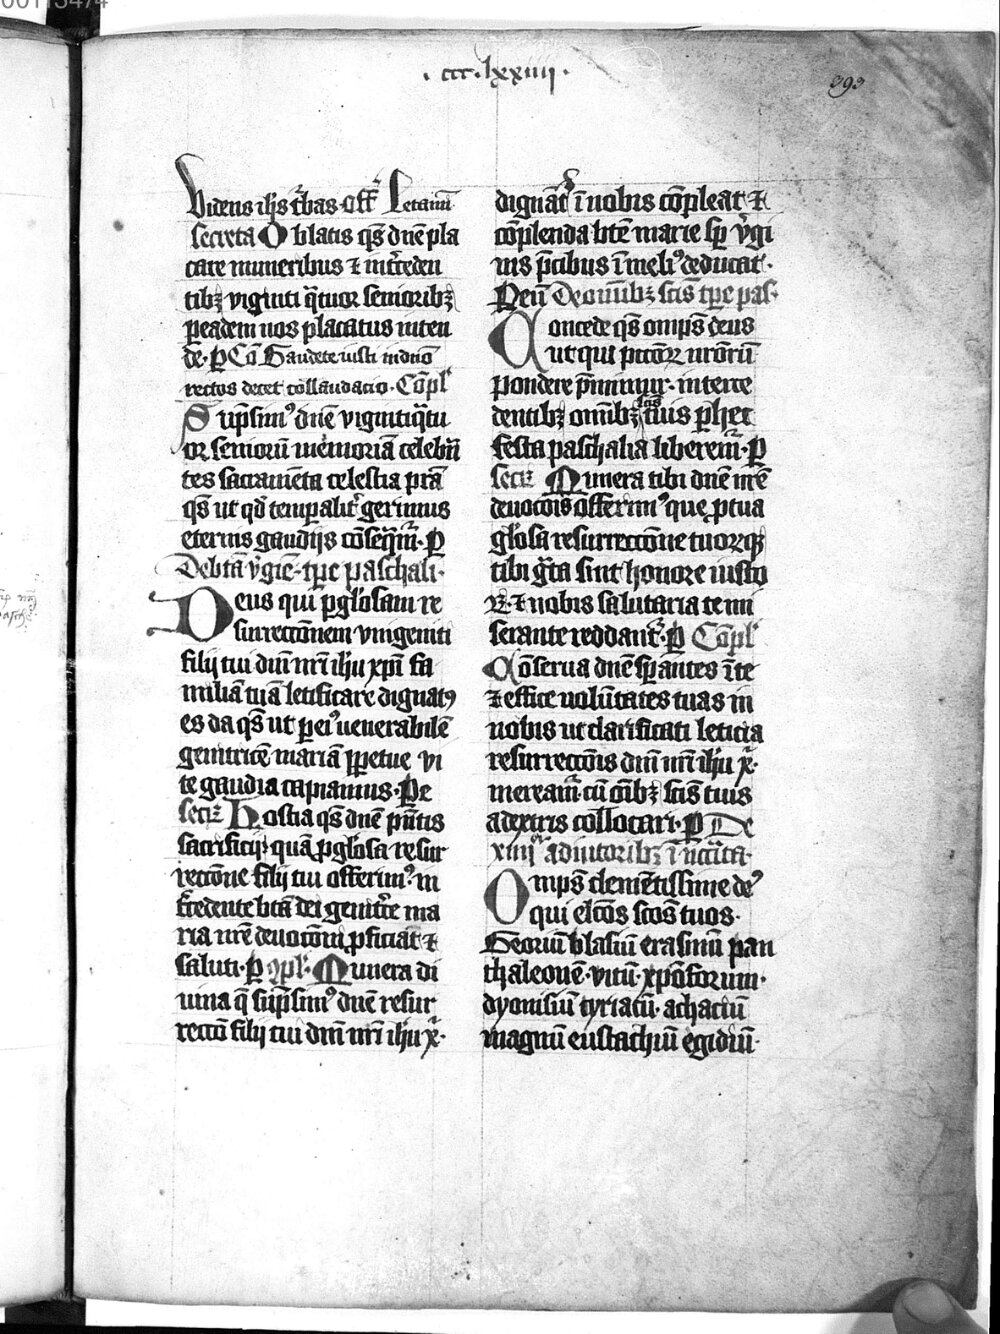 .ccc.lxxiiii.
393
Videns ihs̄ t̾bas. Off̄ Letamī
secreta Oblatis qs̄ dn̄e pla
care muneribus ⁊ int̾ceden
tibꝫ viginti q̄tuor senioribꝫ
ꝑ eadem nos placatus inten
de. ꝑ Cō Gaudete iusti in dn̄o
rectos decet collaudacio. Cōpl̄
Sūpsim⁹ dn̄e vigintiq̄tu
or senioꝝ memoriā celebrā
tes sacramēta celestia p̄ra
qs̄ ut qd̾ tempalit̾ gerimus
eternis gaudijs cōseq̄m̄r. ꝑ
De btā v̾gīe. tꝑe paschali.
Deus qui ꝑ gl̾osam re
surrectionem vnigeniti
filij tui dn̄i nr̄i ih̄u xp̄i fa
miliā tuā letificare dignat⁹
es da qs̄ ut ꝑ ei⁹ venerabilē
genitricē mariā ꝑpetue vi
te gaudia capiamus. Pe
secr̄ Hostia qs̄ dn̄e p̄ntis
sacrificij quā ꝓ gl̾osa resur
rectōne filij tui offerim⁹ in
t̾cedente btā dei genit̾ce ma
ria nr̄e deuotōni ꝓficiat ⁊
saluti. ꝑ ꝯpl̄. Munera di
uina q̄ sūpsim⁹ dn̄e resur
rectō filij tui dn̄i nr̄i ih̄u x̄.
dignāt̾ ī nobis cōpleat ⁊
cōplenda btē marie sꝑ v̾gi
nis p̄cibus ī meli⁹ deducat.
Peū De om̄ibꝫ scīs tꝑe pas.
Concede qs̄ omps̄ deus
ut qui pctōꝝ nr̄oꝝ
pondere p̄mimur. interce
dentibꝫ om̄ibꝫ scīs tuis ꝑ hec
festa paschalia liberem̄r. ꝑ
secr̄ Munera tibi dn̄e nr̄e
deuotōis offerim⁹ que ꝓ tua
gl̾osa resurrectōne tuoꝝqꝫ
tibi gr̄ta sint honore iusto
ꝝ. ⁊ nobis salutaria te mi
serante reddant̾. ꝑ Cōpl̄
Cōserua dn̄e sꝑantes ī te
⁊ effice volūtates tuas in
nobis ut clarificati leticia
resurrectōis dn̄i nr̄i ih̄u x̄.
meream̄r cū om̄ibꝫ scīs tuis
a dextris collocari. ꝑ De
xiiij adiutoribꝫ ī ncc̄itā.
Omps̄ clemētissime de⁹
qui elc̄os scōs tuos.
Georiū blasiū erasmū pan
thaleonē. vitū. xp̄oforum.
dyonisiū cyriacū. achaciū
magnū eustachiū egidiū.